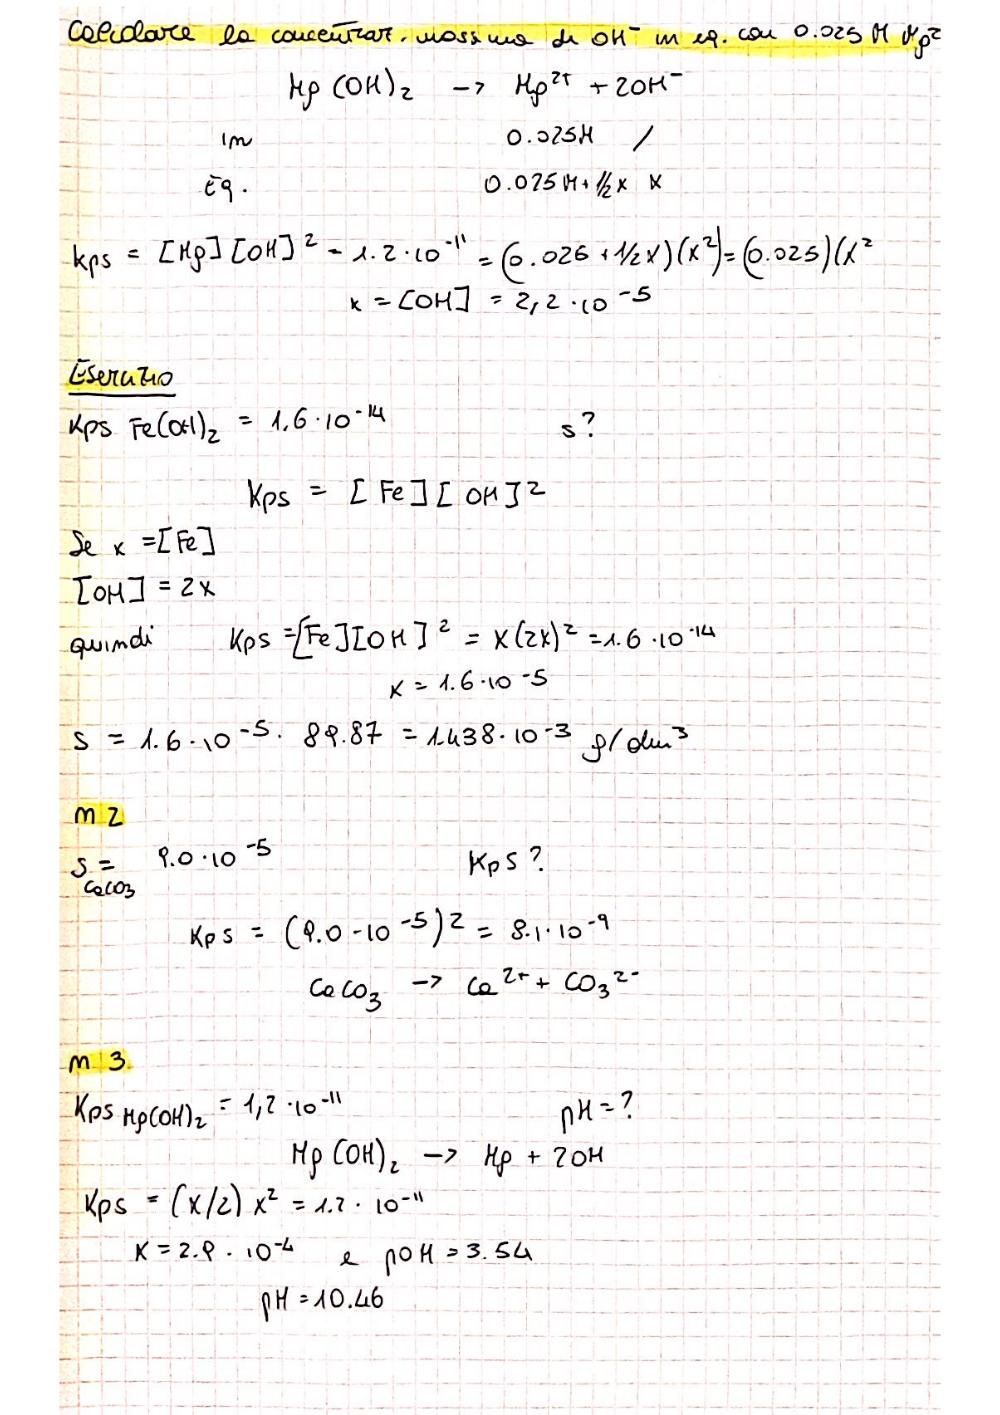 Calcolare la concentraz. massima di OH⁻ in eq. con 0.025 M Mg²
Mg(OH)₂ → Mg²⁺ + 2OH⁻
in 0.025M /
Eq. 0.025M + 1/2x x
kps = [Mg][OH]² = 1.2·10⁻¹¹ = (0.026 + 1/2x)(x²) = (0.025)(x²
x = [OH] = 2,2·10⁻⁵
Esercizio
Kps Fe(OH)₂ = 1,6·10⁻¹⁴ s?
Kps = [Fe][OH]²
Se x = [Fe]
[OH] = 2x
quindi Kps = [Fe][OH]² = x(2x)² = 1.6·10⁻¹⁴
x = 1.6·10⁻⁵
s = 1.6·10⁻⁵ · 89.87 = 1.438·10⁻³ g/dm³
n 2
S CaCO₃ = 9.0·10⁻⁵ Kps?
Kps = (9.0·10⁻⁵)² = 8.1·10⁻⁹
CaCO₃ → Ca²⁺ + CO₃²⁻
n 3
Kps Mg(OH)₂ = 1,2·10⁻¹¹ pH = ?
Mg(OH)₂ → Mg + 2OH
Kps = (x/2) x² = 1.2·10⁻¹¹
x = 2.9·10⁻⁴ e pOH = 3.54
pH = 10.46